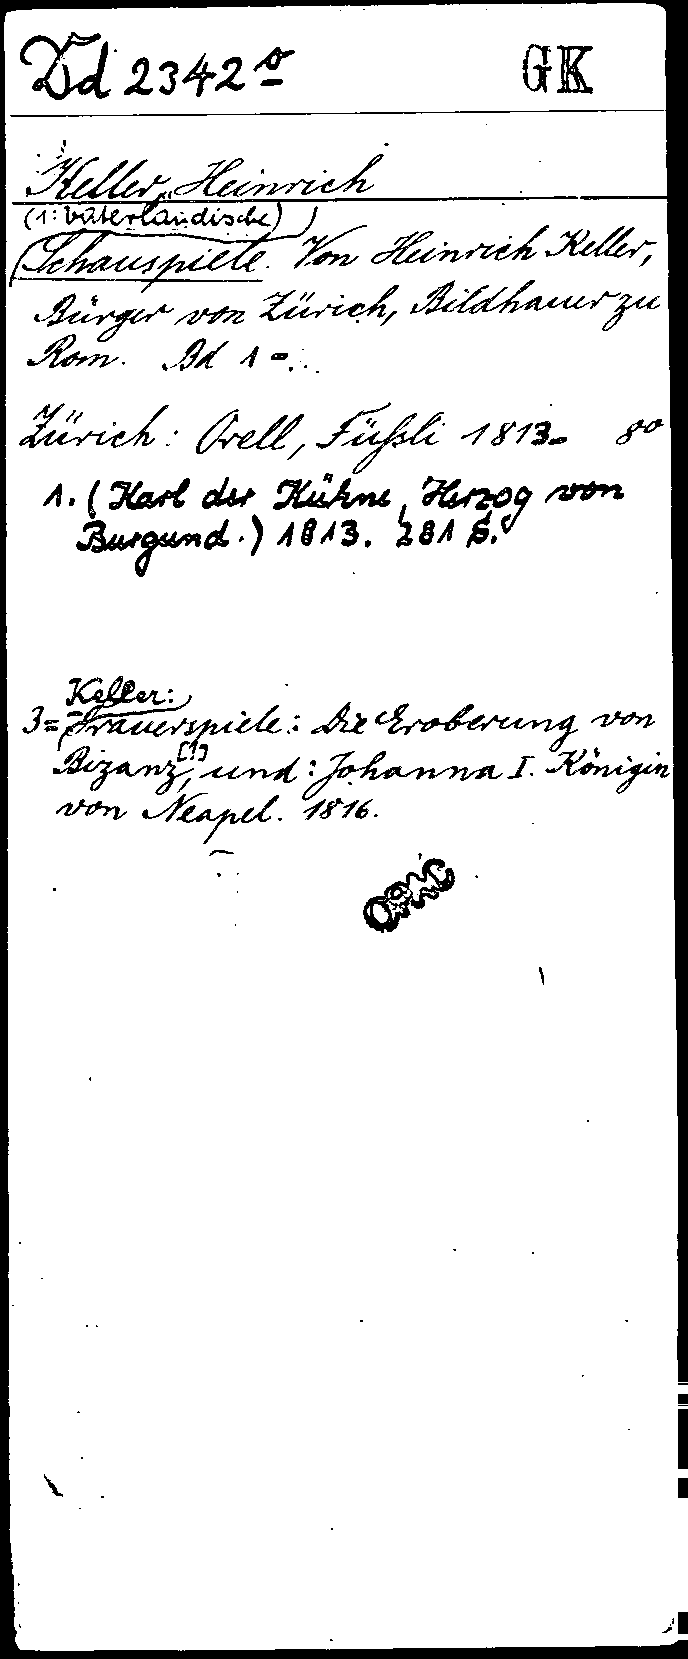 Dd 2342 o
GK
Keller, Heinrich
(1: Vaterländische)
Schauspiele. Von Heinrich Keller,
Bürger von Zürich, Bildhauer zu
Rom. Bd 1-...
Zürich: Orell, Füßli 1813- 8°
1. (Karl der Kühne, Herzog von
Burgund.) 1813. 281 S.
Keller:
3= Trauerspiele: Die Eroberung von
Bizanz [!], und: Johanna I. Königin
von Neapel. 1816.
OPAC